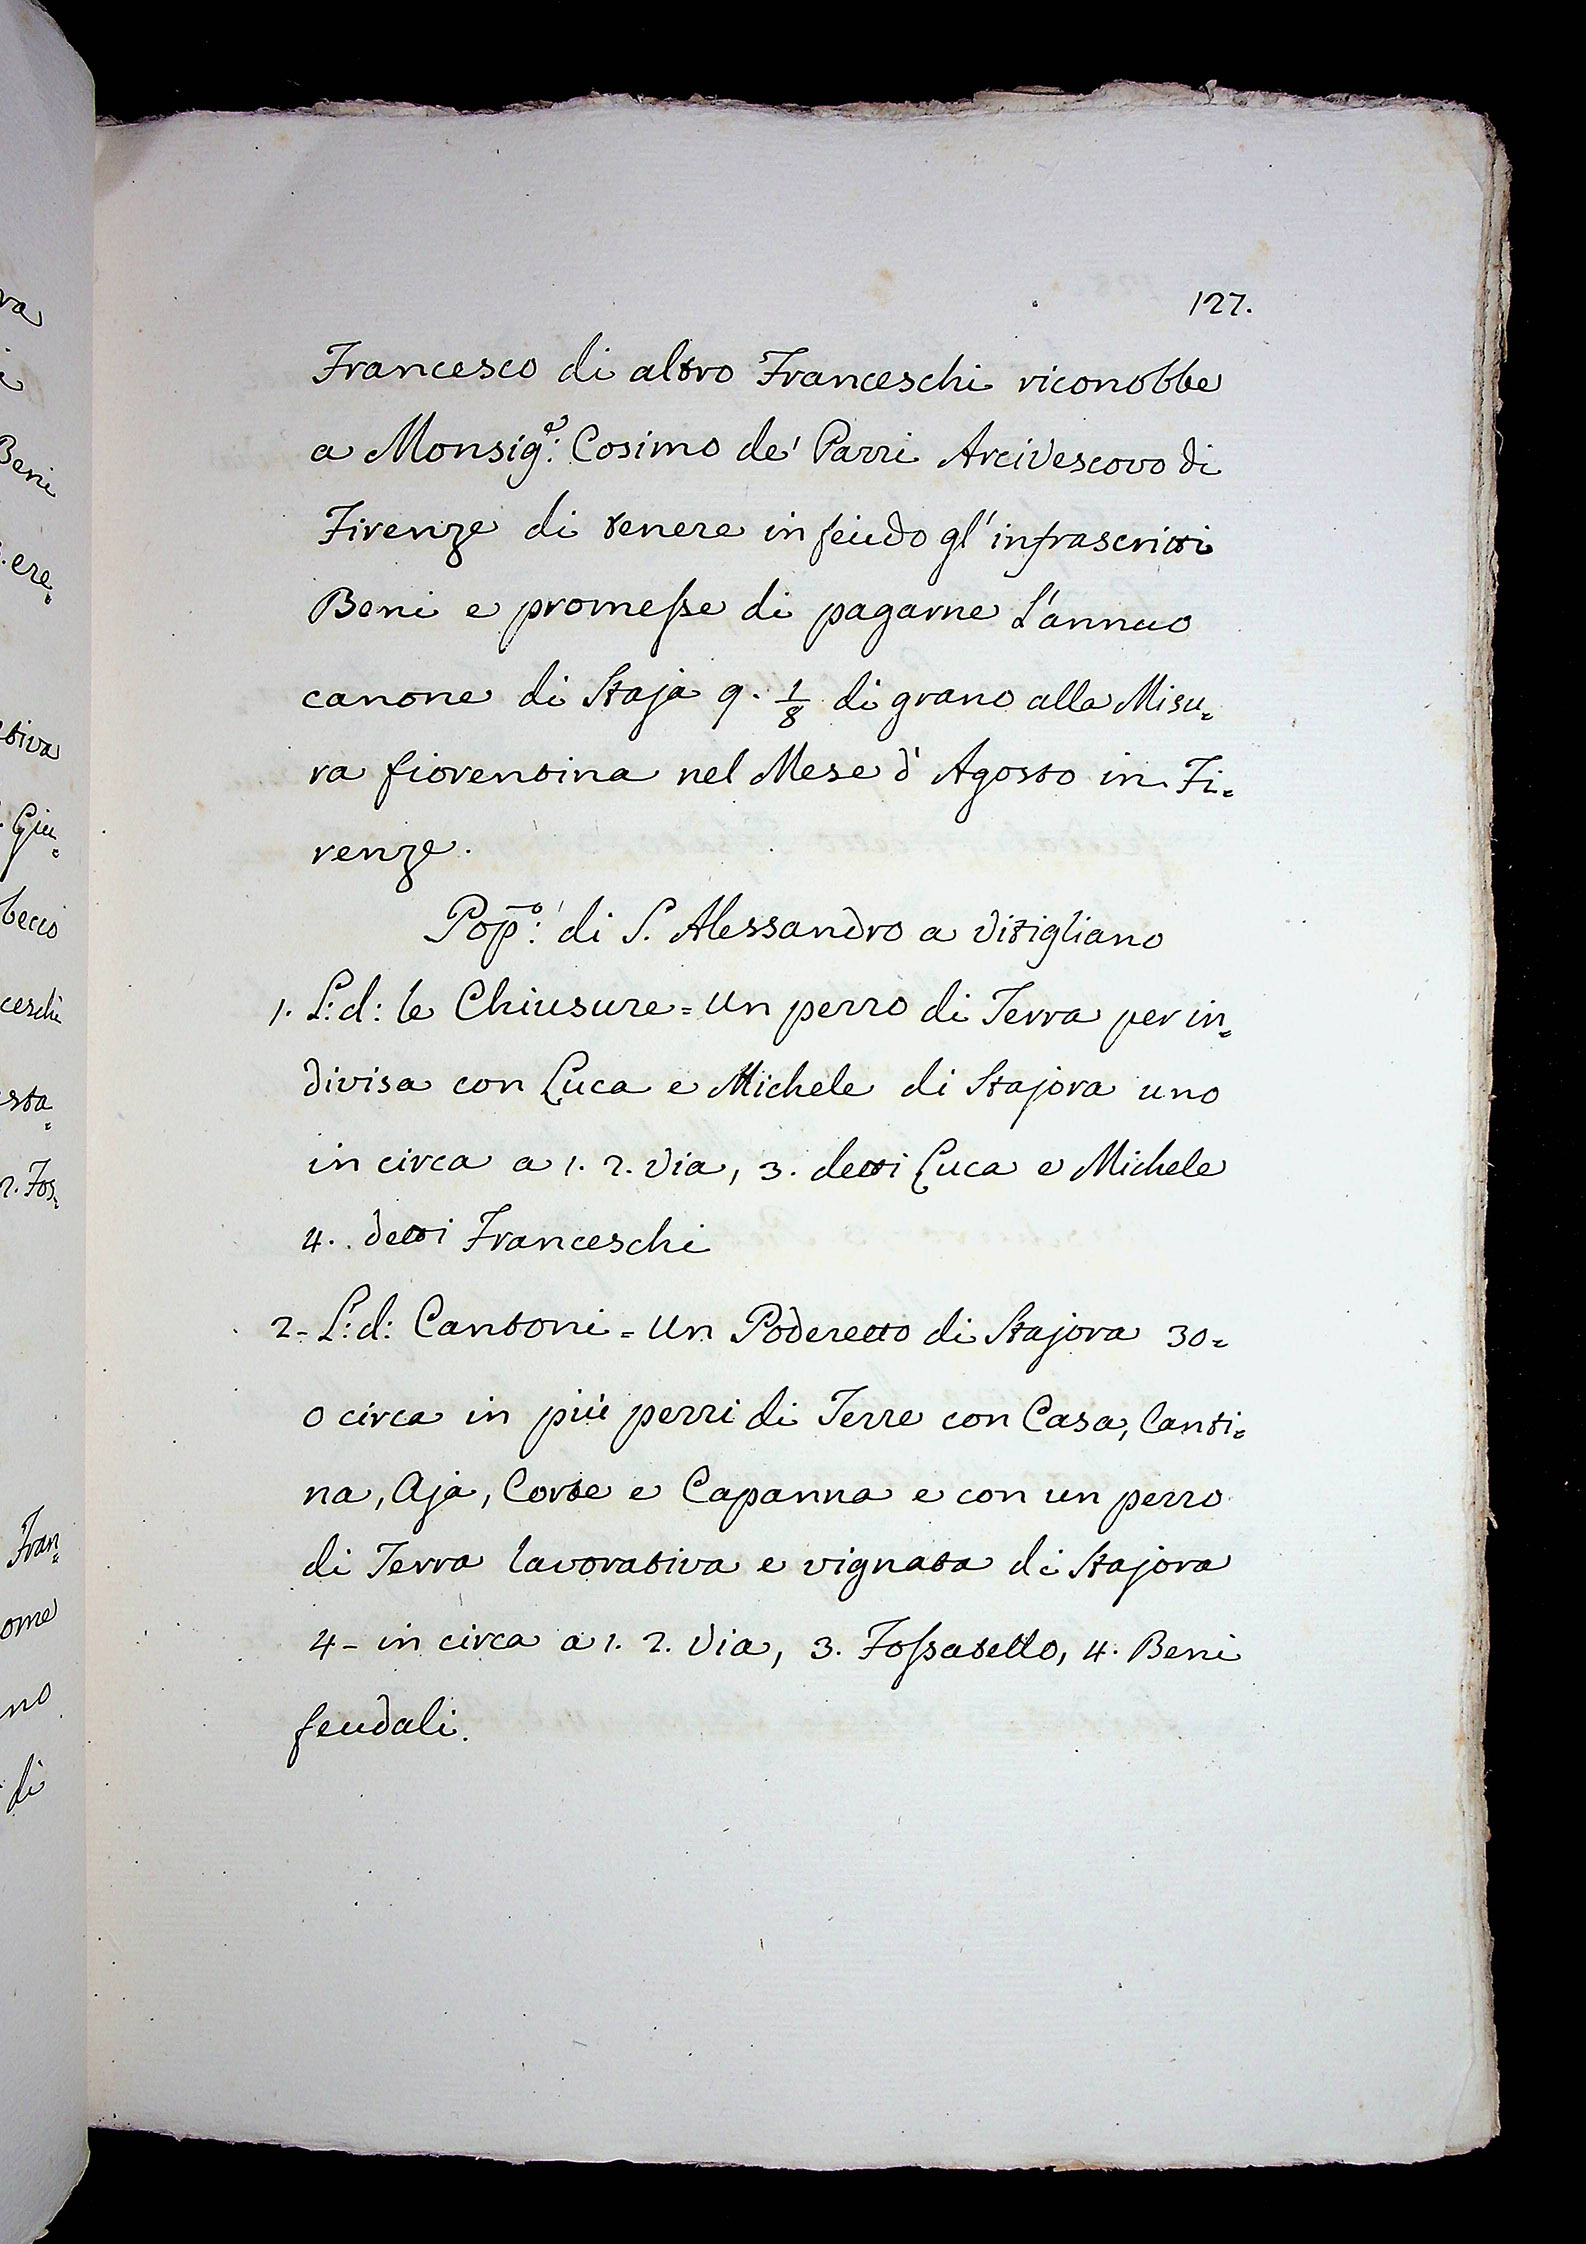 va
Beni
ere=
ativa
Giu=
beccio
ceschi
sta=
2. Fos=
Fran=
ome
no
di
127.
Francesco di altro Franceschi riconobbe
a Monsigᵉ: Cosimo de' Pazzi Arcivescovo di
Firenze di tenere in feudo gl'infrascritti
Beni e promesse di pagarne l'annuo
canone di Staja 9. 1/8 di grano alla Misu=
ra fiorentina nel Mese d'Agosto in Fi=
renze.
Popº: di S. Alessandro a Vitigliano
1. L: d: le Chiusure = Un pezzo di Terra per in=
divisa con Luca e Michele di Stajora uno
in circa a 1. 2. Via, 3. detti Luca e Michele
4. detti Franceschi
2- L: d: Cantoni = Un Poderetto di Stajora 30=
o circa in più pezzi di Terre con Casa, Canti=
na, Aja, Corte e Capanna e con un pezzo
di Terra lavorativa e vignata di Stajora
4- in circa a 1. 2. Via, 3. Fossatello, 4. Beni
feudali.